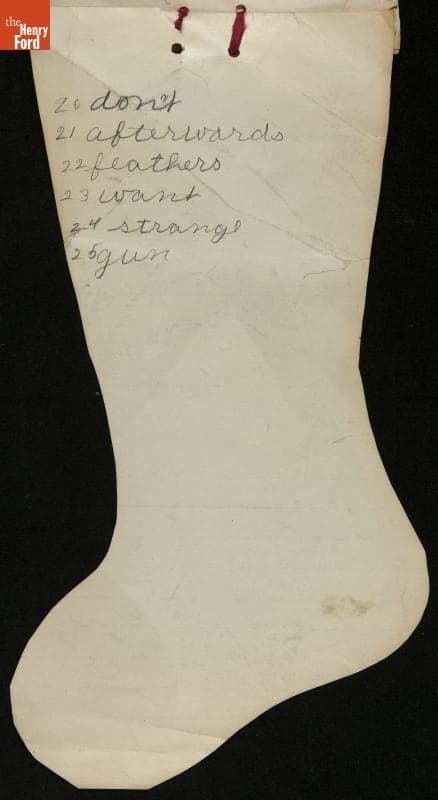 the
Henry
Ford
20 don't
21 afterwards
22 feathers
23 want
24 strange
25 gun